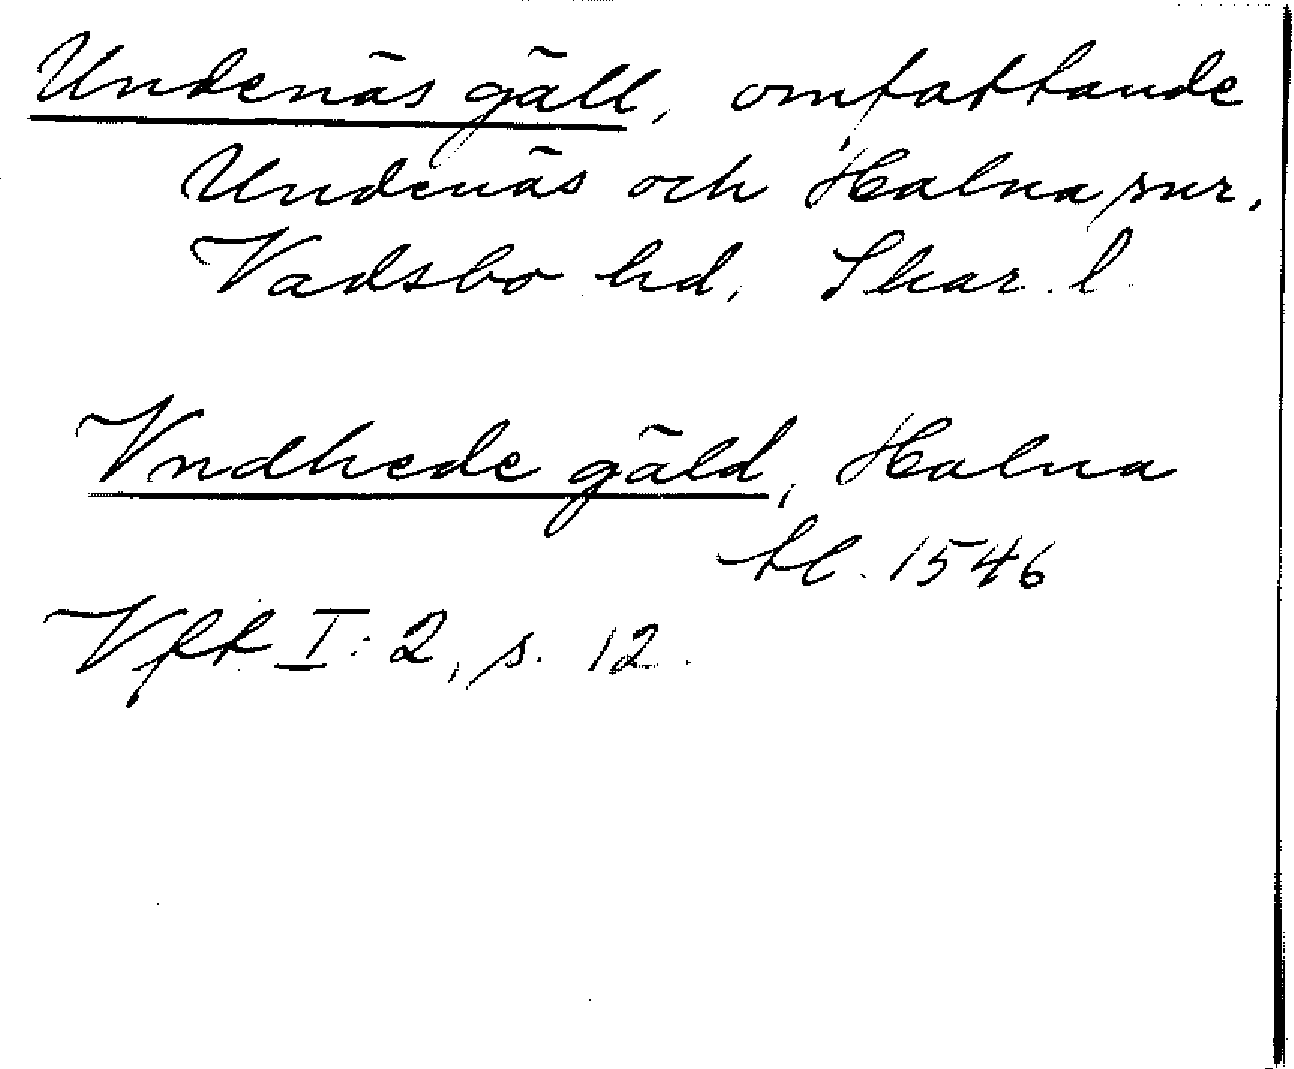 Undenäs gäll, omfattande
Undenäs och Halna snr.
Vadsbo hd, Skar. l.
Vndhede gäld, Halna
tl. 1546
Vfft I: 2, s. 12.